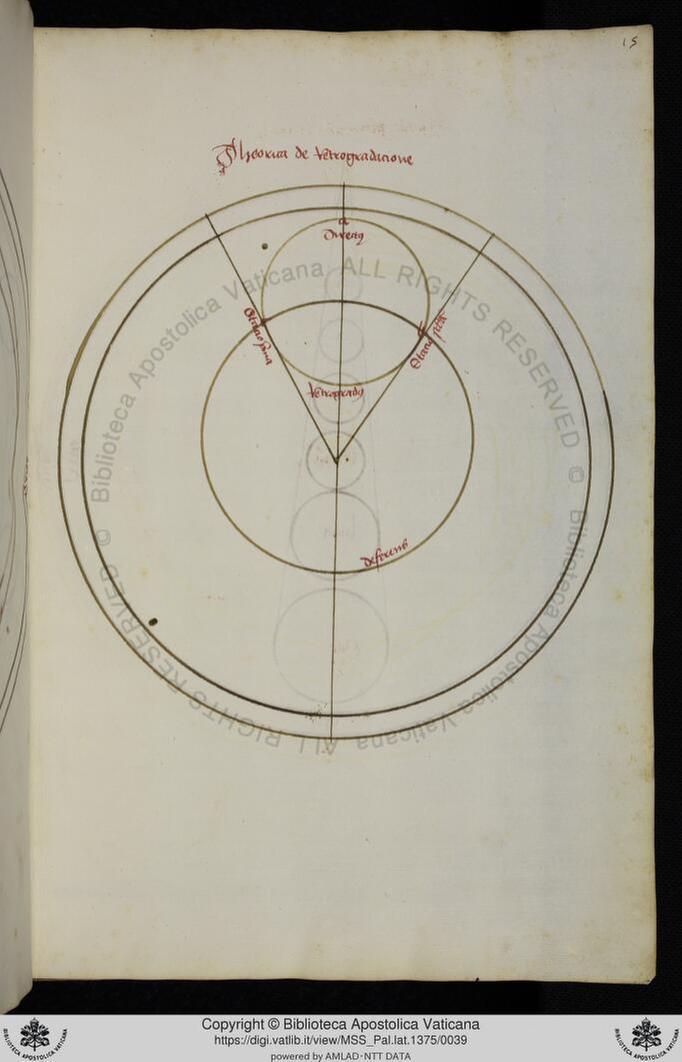 15
Theorica de retrogradacione
a
directus
Statio prima
b
Statio secunda
retrogradus
deferens
© Biblioteca Apostolica Vaticana ALL RIGHTS RESERVED © Biblioteca Apostolica Vaticana ALL RIGHTS RESERVED
Copyright © Biblioteca Apostolica Vaticana
https://digi.vatlib.it/view/MSS_Pal.lat.1375/0039
powered by AMLAD•NTT DATA